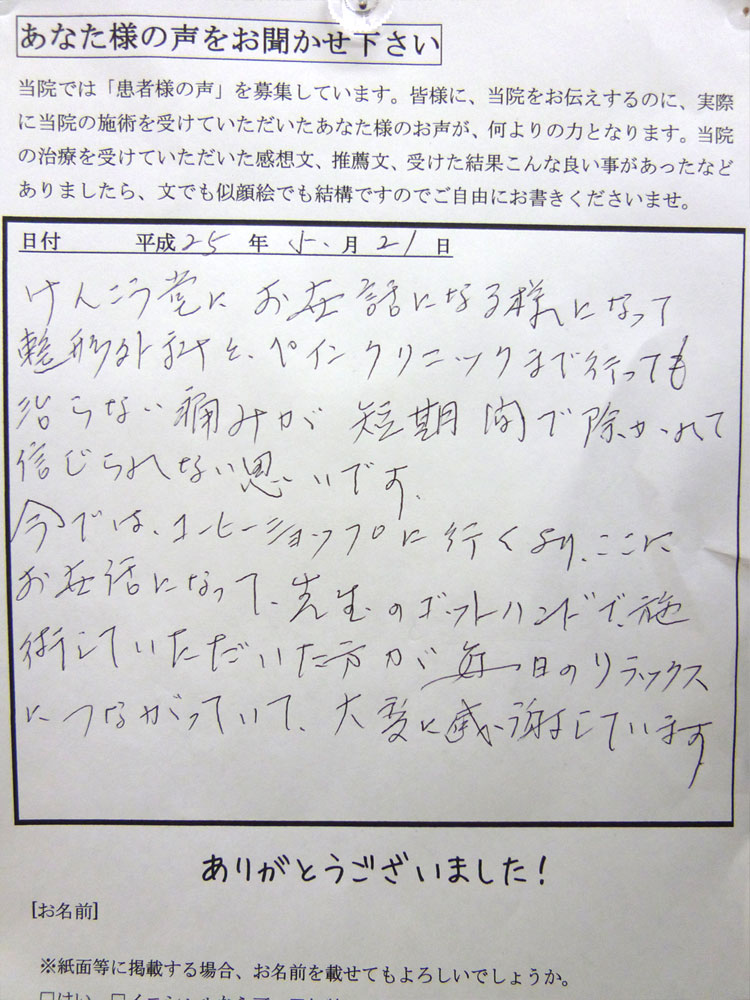 あなた様の声をお聞かせ下さい
当院では「患者様の声」を募集しています。皆様に、当院をお伝えするのに、実際
に当院の施術を受けていただいたあなた様のお声が、何よりの力となります。当院
の治療を受けていただいた感想文、推薦文、受けた結果こんな良い事があったなど
ありましたら、文でも似顔絵でも結構ですのでご自由にお書きくださいませ。
日付 平成25年5月21日
けんこう堂にお世話になる様になって
整形外科と、ペインクリニックまで行っても
治らない痛みが短期間で除かれて
信じられない思いです。
今では、コーヒーショップに行くより、ここに
お世話になって、先生のゴットハンドで、施
術していただいた方が毎日のリラックス
につながっていて、大変に感謝しています
ありがとうございました!
[お名前]
※紙面等に掲載する場合、お名前を載せてもよろしいでしょうか。
□はい □イニシャルなら